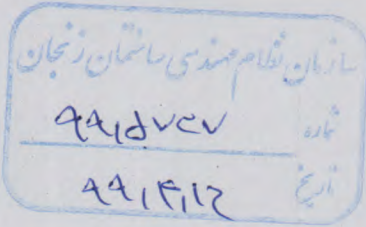 سازمان نظام مهندسی ساختمان زنجان
شماره ۹۹/۵۷۴۷
تاریخ ۹۹/۴/۱۶